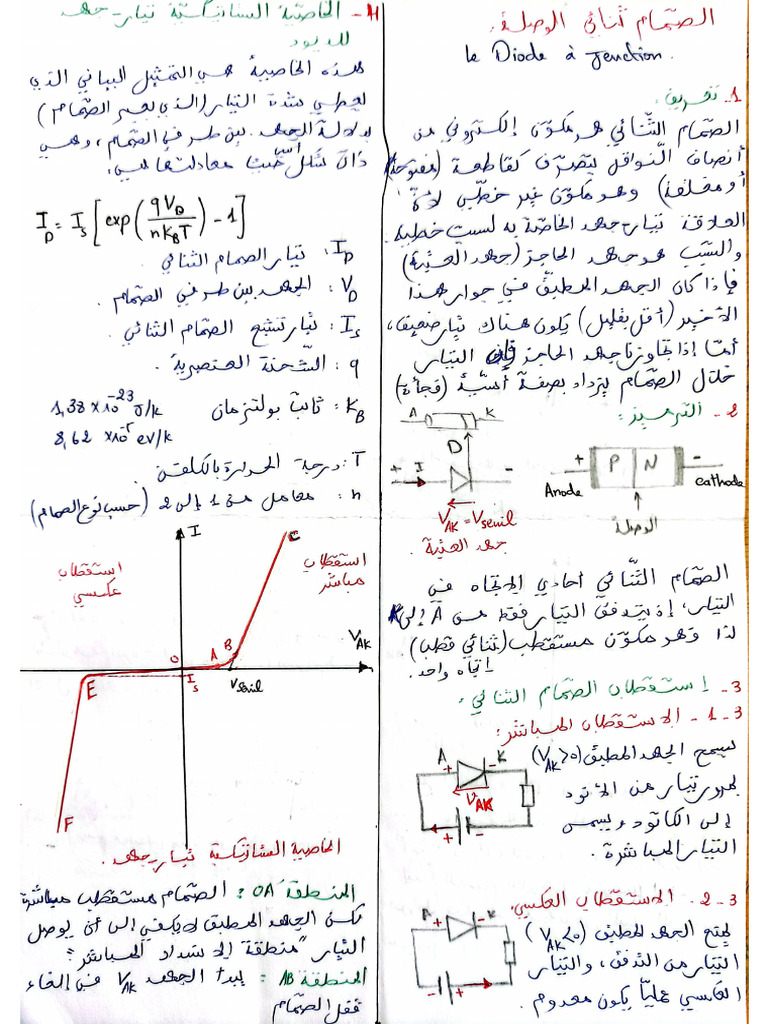 الصمام ثنائي الوصلة:
le Diode à Jenction.
1- تعريف:
الصمام الثنائي هو مكوّن إلكتروني من
أنصاف النواقل يتصرّف كقاطعة (مفتوحة
أو مغلقة) وهو مكوّن غير خطّي لأنّ
العلاقة تيار-جهد الخاصّة به ليست خطية
والسبب هو جهد الحاجز (جهد العتبة)
فإذا كان الجهد المطبق في جوار هذا
الأخير (أقل بقليل) يكون هناك تيار ضعيف،
أمّا إذا تجاوزنا جهد الحاجز فإن التيار
خلال الصمام يزداد بصفة أسيّة (فجأة)
2- الترميز:
A K
D
+ I -
V_AK = V_seuil
جهد العتبة.
+ P N -
Anode cathode
الوصلة
الصمام الثنائي أحادي الاتجاه في
التيار، إذ يتدفق التيار فقط من A إلى K
لذا فهو مكوّن مستقطب (ثنائي قطب)
اتجاه واحد.
3- إستقطاب الصمام الثنائي:
3-1- الإستقطاب المباشر:
يسمح الجهد المطبق (V_AK>0)
بمرور تيار من الأنود
إلى الكاتود ويسمى
التيار المباشرة.
A + - K
V_AK
+ -
3-2- الاستقطاب العكسي.
يمنع الجهد المطبق (V_AK<0)
التيار من التدفق، والتيار
العكسي عمليّا يكون معدوم.
A K
- +
4- الخاصية الستاتيكية تيار-جهد
للديود
هذه الخاصية هي التمثيل البياني الذي
يعطي شدة التيار (الذي يعبر الصمام)
بدلالة الجهد بين طرفي الصمام، وهي
ذات شكل أسي معادلتها هي:
I_D = I_S [exp(qV_D / nK_BT) - 1]
I_D: تيار الصمام الثنائي.
V_D: الجهد بين طرفي الصمام.
I_S: تيار تشبع الصمام الثنائي.
q: الشحنة العنصرية.
K_B: ثابت بولتزمان 1,38 ×10^-23 J/k
8,62 ×10^-5 eV/k
T: درجة الحرارة بالكلفن
n: معامل من 1 إلى 2 (حسب نوع الصمام)
I
C
استقطاب
مباشر
استقطاب
عكسي
O A B V_AK
E I_S V_seuil
F
الخاصية الستاتيكية تيار-جهد.
المنطقة OA: الصمام مستقطب مباشرة
لكن الجهد المطبق لا يكفي إلى أن يوصل
التيار "منطقة الانسداد المباشر"
المنطقة AB: يبدأ الجهد V_AK في إلغاء
قفل الصمام